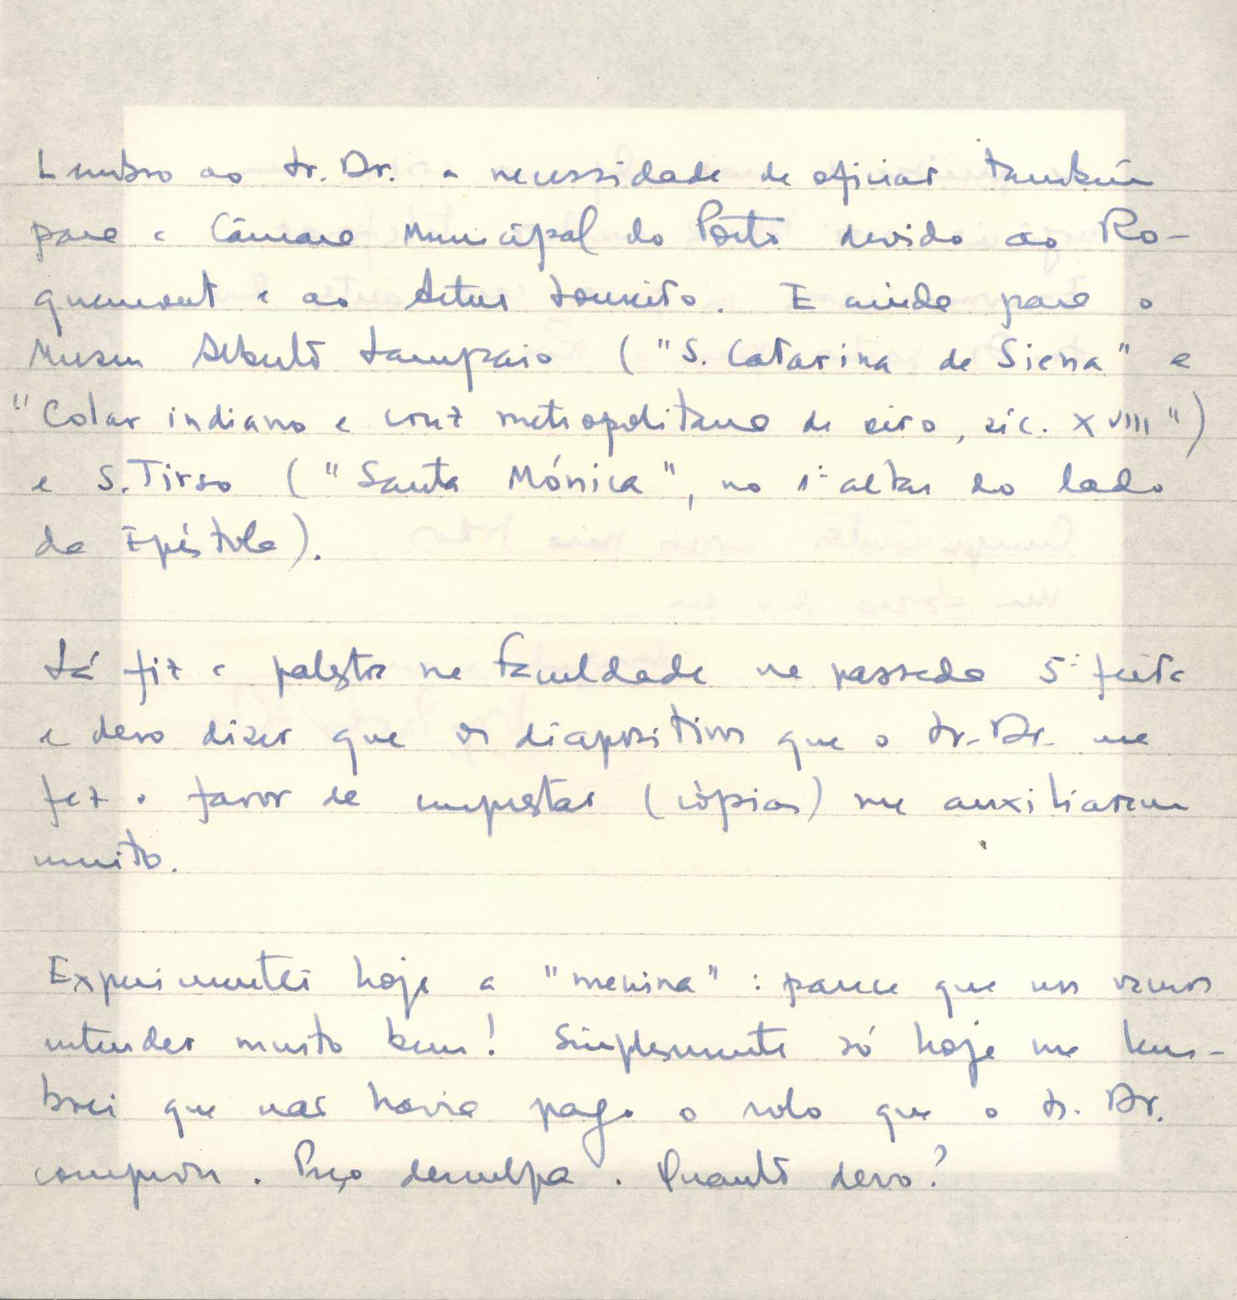 Lembro ao Sr. Dr. a necessidade de oficiar também
para a Câmara Municipal do Porto devido ao Ro-
quemont e ao Artur Loureiro. E ainda para o
Museu Alberto Sampaio ("S. Catarina de Siena" e
"Colar indiano e cruz metropolitana de oiro, séc. XVIII")
e S. Tirso ("Santa Mónica", no 1º altar do lado
da Epístola).
Lá fiz a palestra na Faculdade na passada 5ª feira
e devo dizer que os diapositivos que o Sr. Dr. me
fez o favor de emprestar (cópias) me auxiliaram
muito.
Experimentei hoje a "menina": parece que nos vamos
entender muito bem! Simplesmente só hoje me lem-
brei que não havia pago o rolo que o Sr. Dr.
comprou. Peço desculpa. Quanto devo?